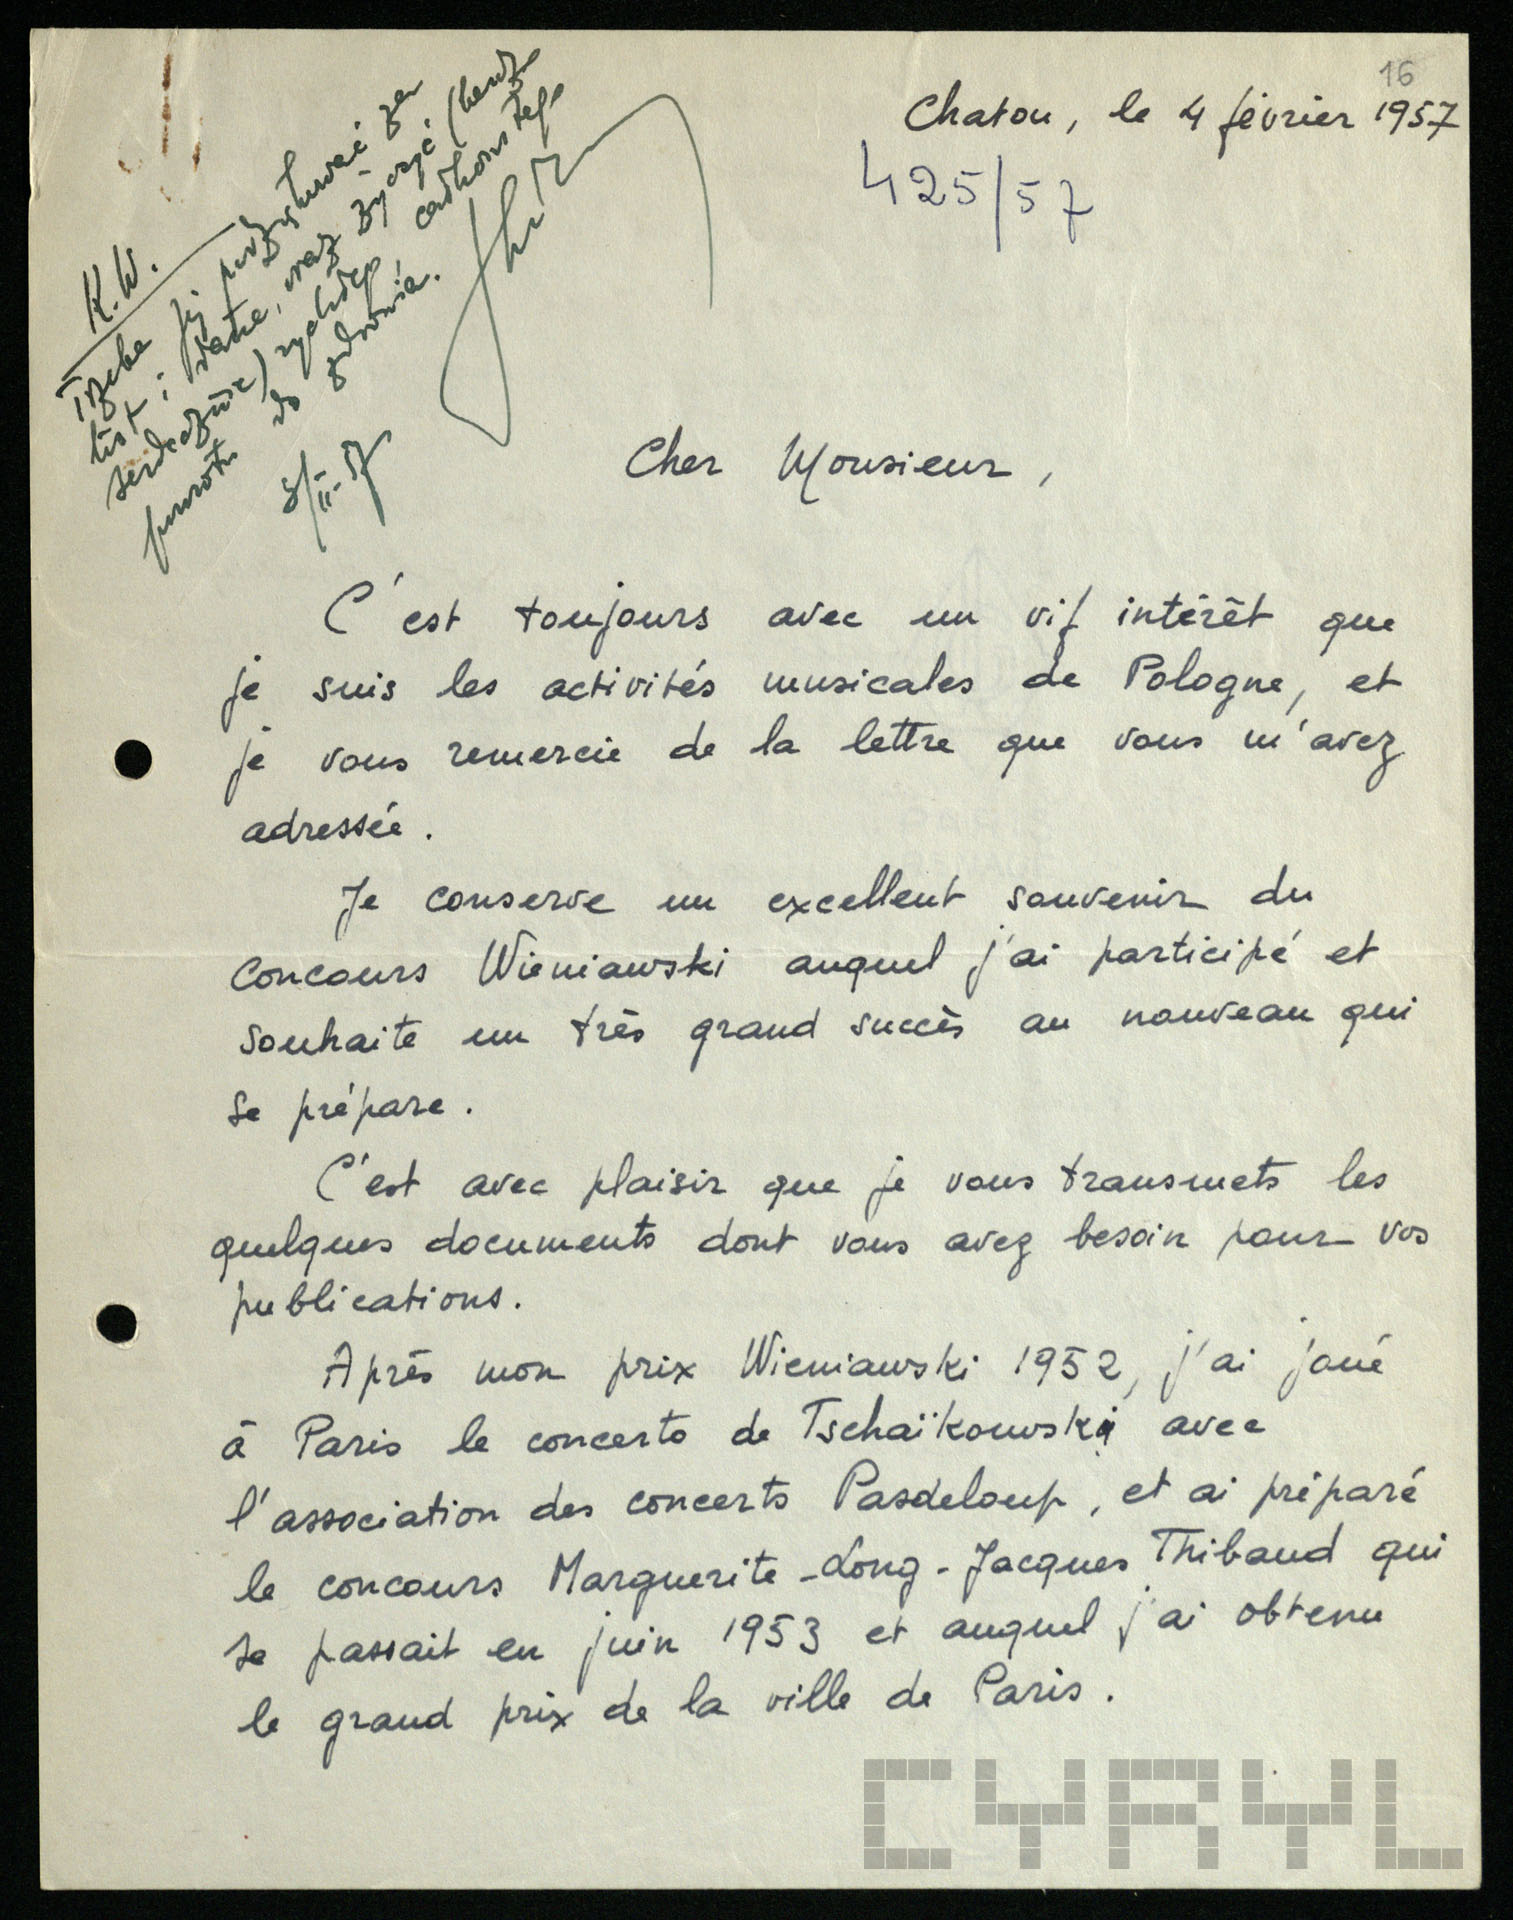 16
Chatou, le 4 février 1957
425/57
K.W.
Trzeba jej podziękować za
list i dane, oraz życzyć (bardzo
serdecznie) rychłego, całkowitego
powrotu do zdrowia.
8/II-57
Cher Monsieur,
C'est toujours avec un vif intérêt que
je suis les activités musicales de Pologne, et
je vous remercie de la lettre que vous m'avez
adressée.
Je conserve un excellent souvenir du
concours Wieniawski auquel j'ai participé et
souhaite un très grand succès au nouveau qui
se prépare.
C'est avec plaisir que je vous transmets les
quelques documents dont vous avez besoin pour vos
publications.
Après mon prix Wieniawski 1952, j'ai joué
à Paris le concerto de Tschaïkowski avec
l'association des concerts Pasdeloup, et ai préparé
le concours Marguerite-Long-Jacques Thibaud qui
se passait en juin 1953 et auquel j'ai obtenu
le grand prix de la ville de Paris.
CYRYL